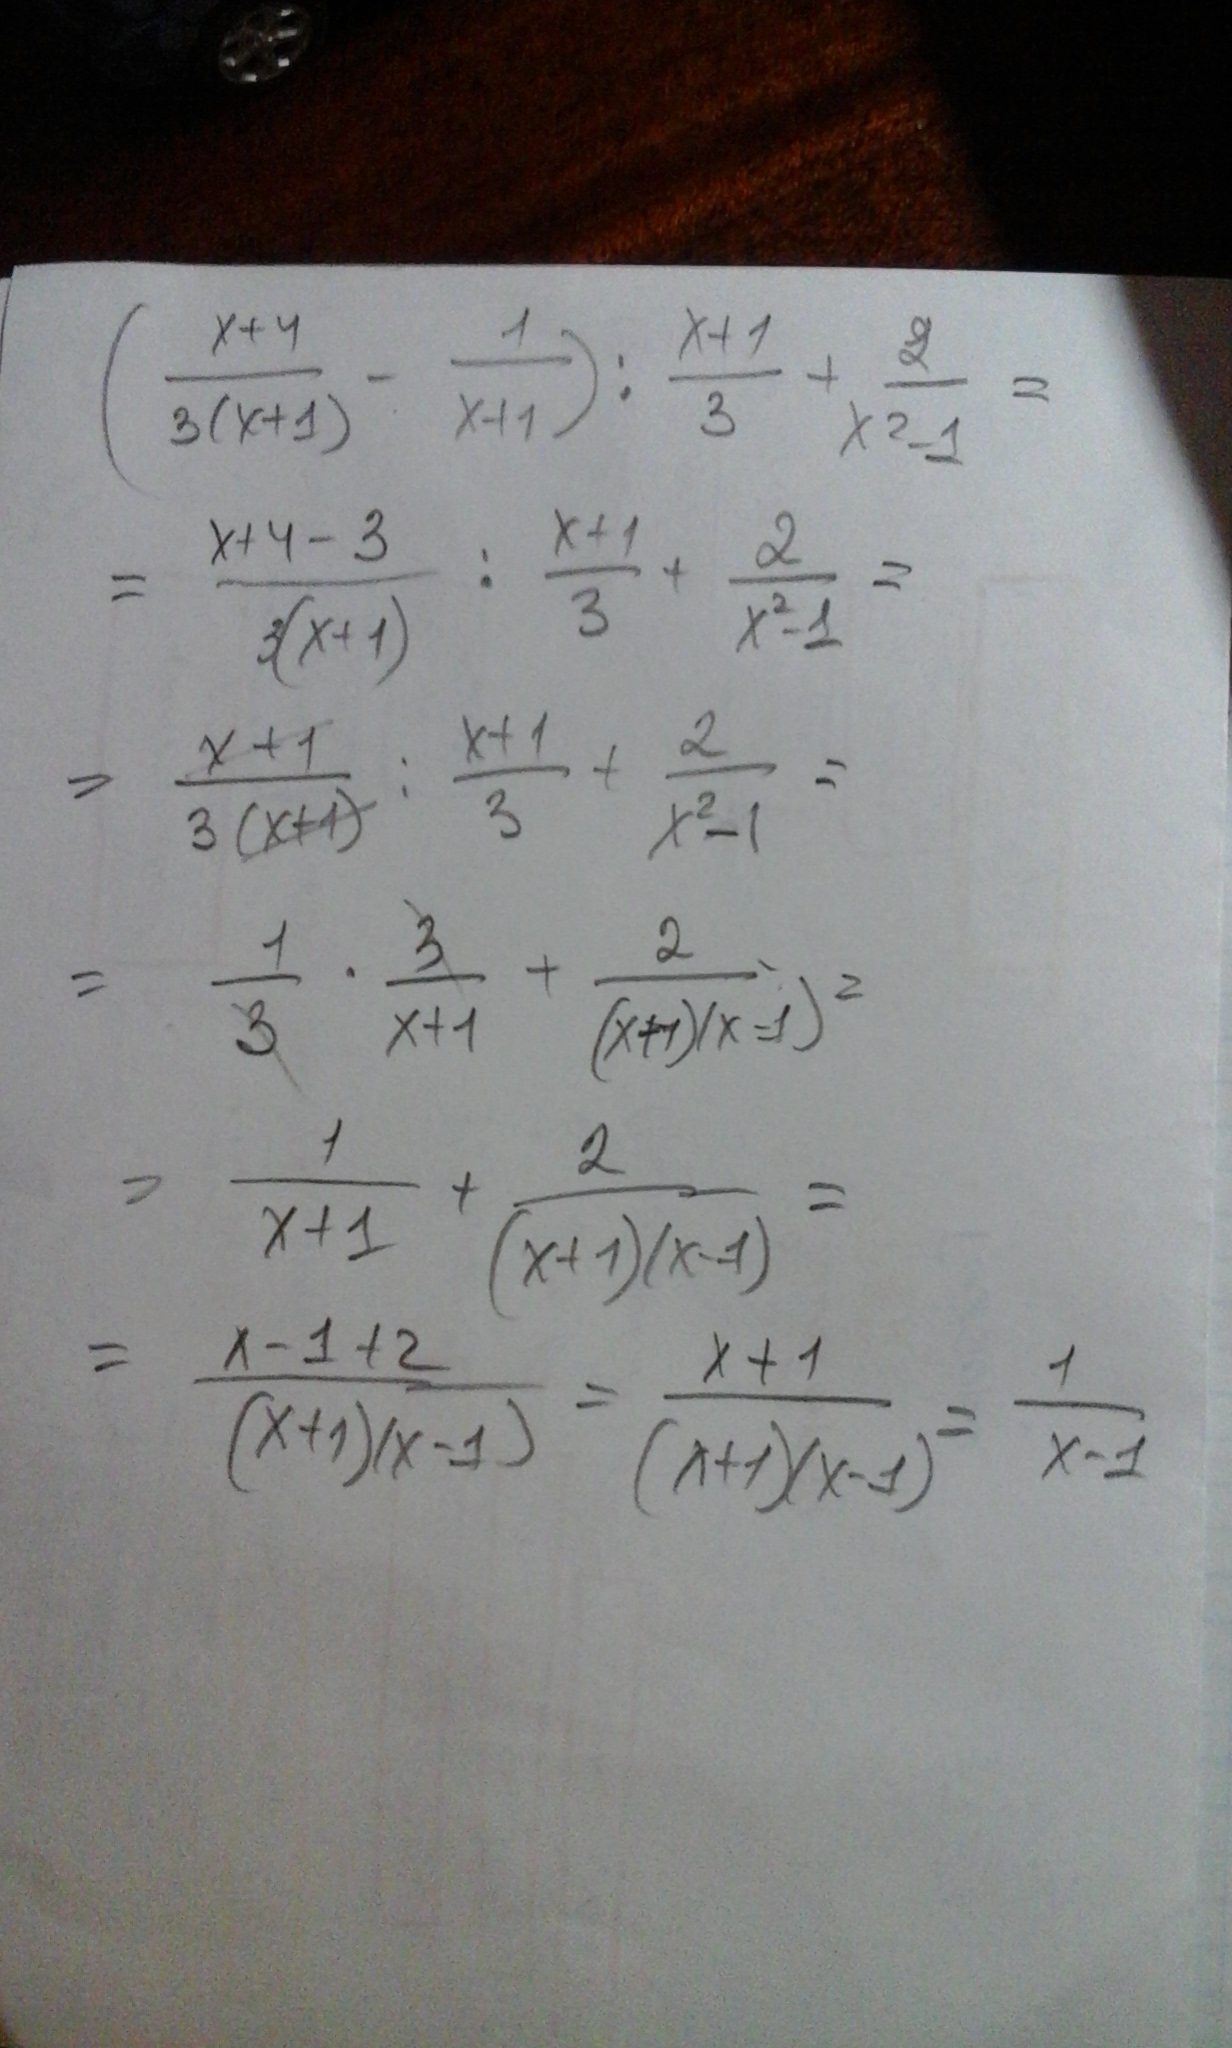 (x+4/3(x+1) - 1/x+1) : x+1/3 + 2/x²-1 =
= x+4-3/3(x+1) : x+1/3 + 2/x²-1 =
= x+1/3(x+1) : x+1/3 + 2/x²-1 =
= 1/3 · 3/x+1 + 2/(x+1)(x-1) =
= 1/x+1 + 2/(x+1)(x-1) =
= x-1+2/(x+1)(x-1) = x+1/(x+1)(x-1) = 1/x-1